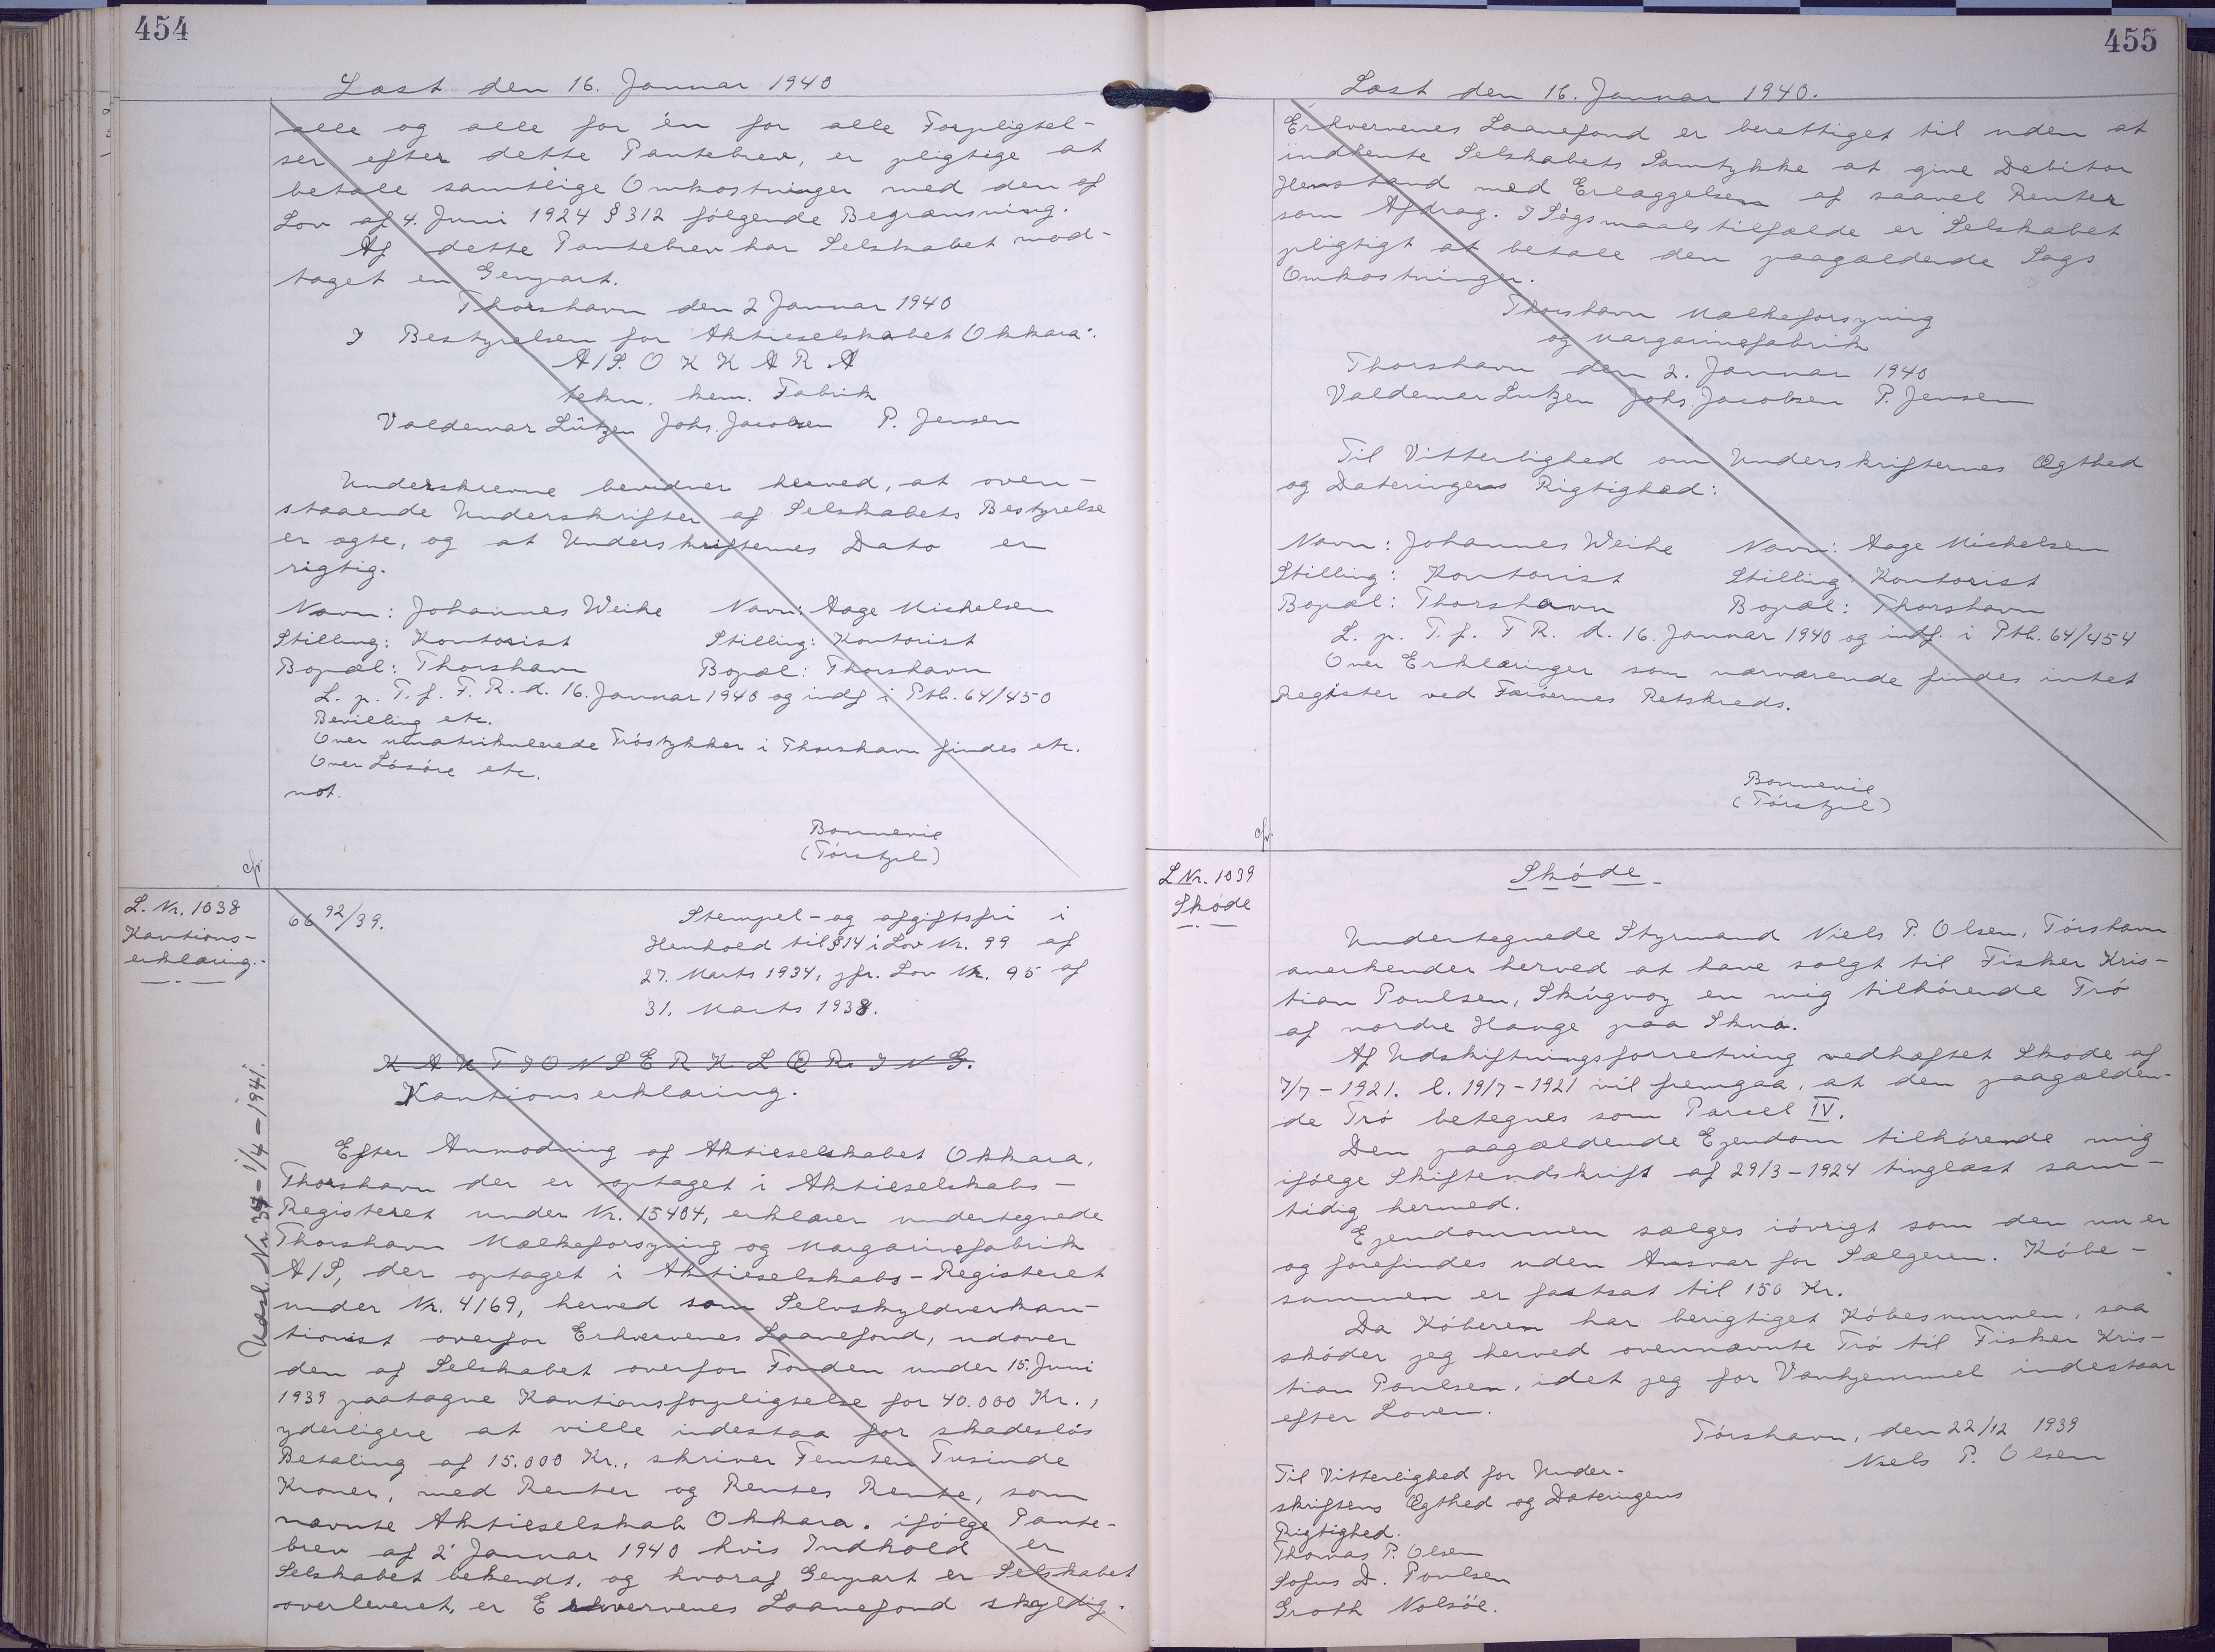 454
Læst den 16. Januar 1940
alle og alle for én for alle Forpligtel-
ser efter dette Pantebrev, er pligtige at
betale samtlige Omkostninger med den af
Lov af 4. Juni 1924 § 312 følgende Begrænsning.
Af dette Pantebrev har Selskabet mod-
taget en Genpart.
Thorshavn den 2 Januar 1940
I Bestyrelsen for Aktieselskabet Okkara:
A/S. O K K A R A
tekn. kem. Fabrik
Valdemar Lützen Johs. Jacobsen P. Jensen
Underskrevne bevidner herved, at oven-
staaende Underskrifter af Selskabets Bestyrelse
er ægte, og at Underskrifternes Dato er
rigtig.
Navn: Johannes Weihe Navn: Aage Michelsen
Stilling: Kontorist Stilling: Kontorist
Bopæl: Thorshavn Bopæl: Thorshavn
L. p. T. f. F. R. d. 16. Januar 1940 og indf i Ptb. 64/450
Bevilling etc.
Over umatrikulerede Tróstykker i Thorshavn findes etc.
Over Løsøre etc.
not.
Bonnevie
(Tórstzil)
cfr.
L. Nr. 1038
Kautions-
erklæring.
66 92/39.
Stempel- og afgiftsfri i
Henhold til § 14 i Lov Nr. 99 af
27. Marts 1934, jfr. Lov Nr. 95 af
31. Marts 1938.
K A U T I O N S E R K L Æ R I N G.
Kautionserklæring.
Udsl. Nr. 34 - 1/4 - 1941.
Efter Anmodning af Aktieselskabet Okkara,
Thorshavn der er optaget i Aktieselskabs-
Registeret under Nr. 15404, erklærer undertegnede
Thorshavn Mælkeforsyning og Margarinefabrik
A/S, der optaget i Aktieselskabs-Registeret
under Nr. 4169, herved som Selvskyldnerkau-
tionist overfor Erhvervenes Laanefond, udover
den af Selskabet overfor Fonden under 15. Juni
1939 paatagne Kautionsforpligtelse for 40.000 Kr.,
yderligere at ville indestaa for skadesløs
Betaling af 15.000 Kr., skriver Femten Tusinde
Kroner, med Renter og Renters Rente, som
nævnte Aktieselskab Okkara. ifølge Pante-
brev af 2' Januar 1940 hvis Indhold er
Selskabet bekendt, og hvoraf Genpart er Selskabet
overleveret, er Erhvervenes Laanefond skyldig.
455
Læst den 16. Januar 1940.
Erhvervenes Laanefond er berettiget til uden at
indhente Selskabets Samtykke at give Debitor
Henstand med Erlæggelsen af saavel Renter
som Afdrag. I Søgsmaalstilfælde er Selskabet
pligtigt at betale den paagældende Sags
Omkostninger.
Thorshavn Mælkeforsyning
og Margarinefabrik
Thorshavn den 2. Januar 1940
Valdemar Lutzen Johs. Jacobsen P. Jensen
Til Vitterlighed om Underskrifternes Ægthed
og Dateringens Rigtighed:
Navn: Johannes Weihe Navn: Aage Michelsen
Stilling: Kontorist Stilling: Kontorist
Bopæl: Thorshavn Bopæl: Thorshavn
L. p. T. f. F R. d. 16. Januar 1940 og indf. i Ptb. 64/454
Over Erklæringer som nærværende findes intet
Register ved Færøernes Retskreds.
Bonnevie
(Tórstzil)
cfr.
L Nr. 1039
Skóde
Skóde
Undertegnede Styrmand Niels P. Olsen, Tórshavn
anerkender herved at have solgt til Fisker Kris-
tian Poulsen, Skúgvoy en mig tilhørende Tró
af nordre Hauge paa Skuø.
Af Udskiftningsforretning vedhæftet Skøde af
7/7 - 1921. l. 19/7 - 1921 vil fremgaa, at den paagælden-
de Tró betegnes som Parcel IV.
Den paagældende Ejendom tilhørende mig
ifølge Skifteudskrift af 29/3 - 1924 tinglæst sam-
tidig hermed.
Ejendommen sælges iøvrigt som den nu er
og forefindes uden Ansvar for Sælgeren. Købe-
summen er fastsat til 150 Kr.
Da Køberen har berigtiget Købesummen, saa
skøder jeg herved ovennævnte Tró til Fisker Kris-
tian Poulsen, idet jeg for Vanhjemmel indestaar
efter Loven.
Tórshavn, den 22/12 1939
Niels P. Olsen
Til Vitterlighed for Under-
skriftens Ægthed og Dateringens
Rigtighed.
Thomas P. Olsen
Sofus D. Poulsen
Groth Nolsöe.